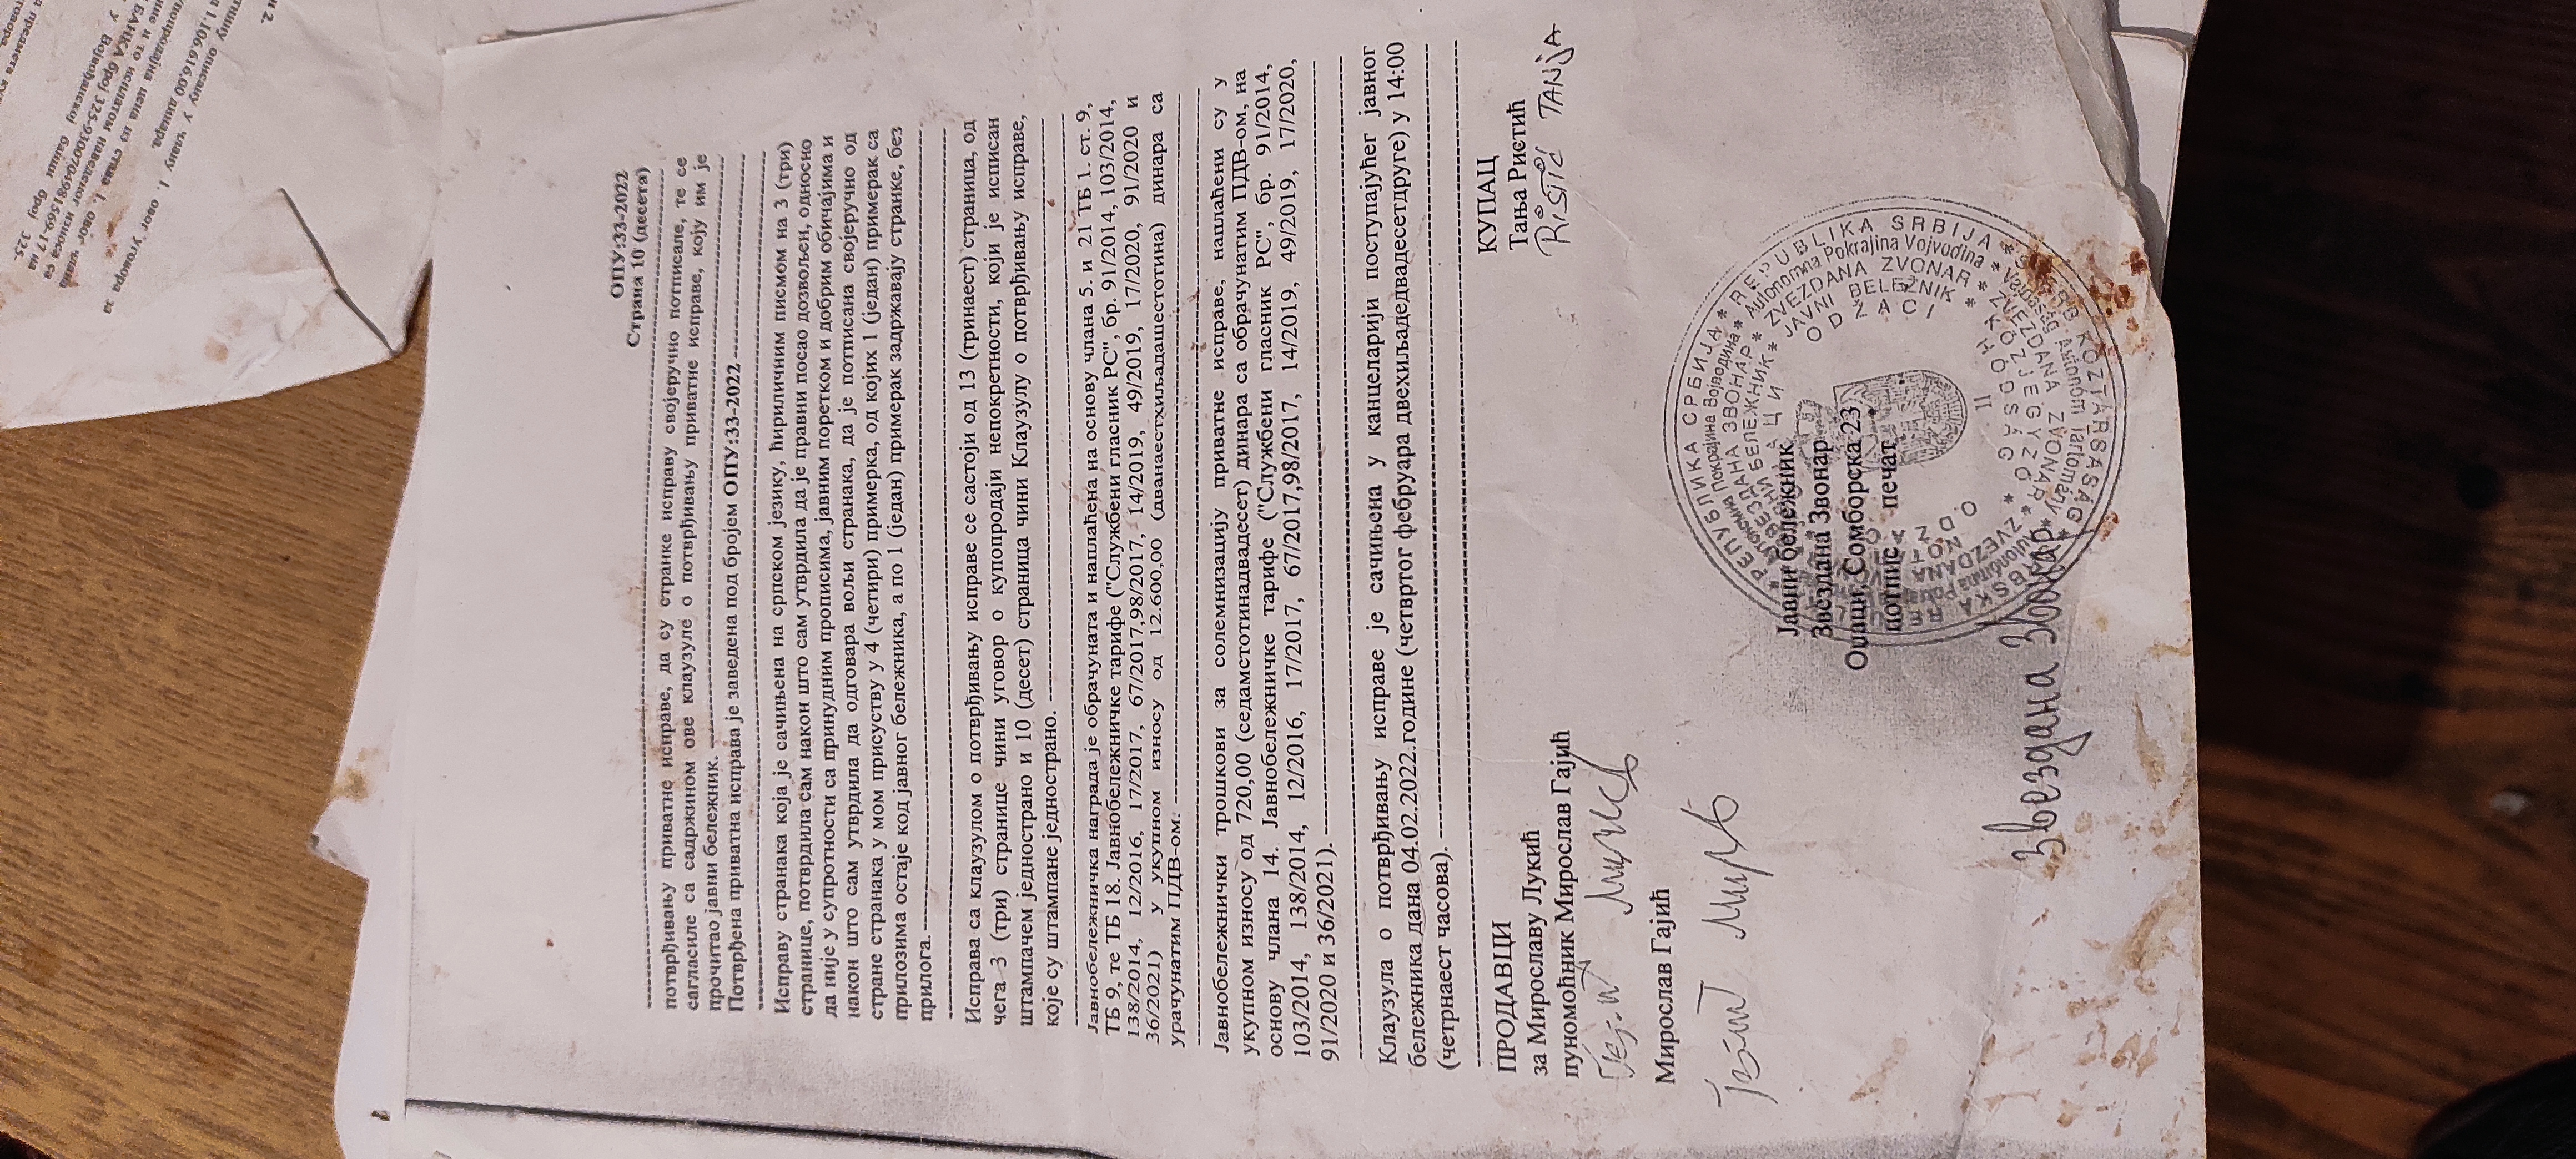 ОПУ:33-2022
Страна 10 (десета)
потврђивању приватне исправе, да су странке исправу својеручно потписале, те се
сагласиле са садржином ове клаузуле о потврђивању приватне исправе, коју им је
прочитао јавни бележник.
Потврђена приватна исправа је заведена под бројем ОПУ:33-2022
Исправу странака која је сачињена на српском језику, ћириличним писмом на 3 (три)
странице, потврдила сам након што сам утврдила да је правни посао дозвољен, односно
да није у супротности са принудним прописима, јавним поретком и добрим обичајима и
након што сам утврдила да одговара вољи странака, да је потписана својеручно од
стране странака у мом присуству у 4 (четири) примерка, од којих 1 (један) примерак са
прилозима остаје код јавног бележника, а по 1 (један) примерак задржавају странке, без
прилога.
Исправа са клаузулом о потврђивању исправе се састоји од 13 (тринаест) страница, од
чега 3 (три) странице чини уговор о купопродаји непокретности, који је исписан
штампачем једнострано и 10 (десет) страница чини Клаузулу о потврђивању исправе,
које су штампане једнострано.
Јавнобележничка награда је обрачуната и наплаћена на основу члана 5. и 21 ТБ 1. ст. 9,
ТБ 9, те ТБ 18. Јавнобележничке тарифе ("Службени гласник РС", бр. 91/2014, 103/2014,
138/2014, 12/2016, 17/2017, 67/2017,98/2017, 14/2019, 49/2019, 17/2020, 91/2020 и
36/2021) у укупном износу од 12.600,00 (дванаестхиљадашестотина) динара са
урачунатим ПДВ-ом.
Јавнобележнички трошкови за солемнизацију приватне исправе, наплаћени су у
укупном износу од 720,00 (седамстотинадвадесет) динара са обрачунатим ПДВ-ом, на
основу члана 14. Јавнобележничке тарифе ("Службени гласник РС", бр. 91/2014,
103/2014, 138/2014, 12/2016, 17/2017, 67/2017,98/2017, 14/2019, 49/2019, 17/2020,
91/2020 и 36/2021).
Клаузула о потврђивању исправе је сачињена у канцеларији поступајућег јавног
бележника дана 04.02.2022.године (четвртог фебруара двехиљадедвадесетдруге) у 14:00
(четрнаест часова).
ПРОДАВЦИ
за Мирославу Лукић
пуномоћник Мирослав Гајић
Мирослав Гајић
КУПАЦ
Тања Ристић
RISTIĆ TANJA
Јавни бележник
Звездана Звонар
Оџаци, Сомборска 23
потпис печат
Звездана Звонар
РЕПУБЛИКА СРБИЈА * REPUBLIKA SRBIJA *
Autonomna Pokrajina Vojvodina
ZVEZDANA ZVONAR
JAVNI BELEŽNIK
ODŽACI